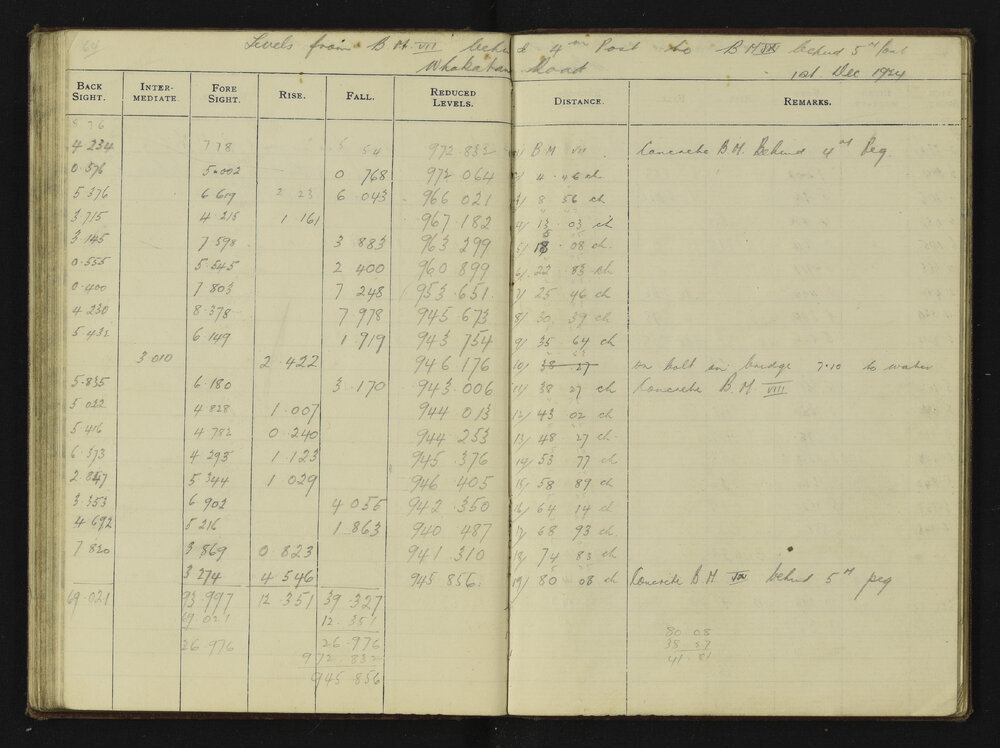 64 Levels from B M VII behind 4 m Post to B M IX behind 5 M Post
Whakatane Road 1st Dec 1924
BACK SIGHT. INTER-MEDIATE. FORE SIGHT. RISE. FALL. REDUCED LEVELS. DISTANCE. REMARKS.
4 234 7 78 5 54 972 832 1/ B M VII Concrete B.M. Behind 4 M Peg
0 576 5.002 0 768 972 064 2/ 4 46 ch
5 376 6 619 2 23 6 043 966 021 3/ 8 56 ch
3 715 4 215 1 161 967 182 4/ 13 03 ch
3 145 7 598 3 883 963 299 5/ 18 08 ch
0.555 5.545 2 400 960 899 6/ 22 83 ch
0.400 7 803 7 248 953 651 7/ 25 46 ch
4 230 8 378 7 978 945 673 8/ 30 39 ch
5.432 6 149 1 919 943 754 9/ 35 64 ch
3 010 2 422 946 176 10/ 38 27 on bolt in bridge 7.10 to water
5.835 6.180 3 170 943.006 11/ 38 27 ch Concrete B.M VIII
5 022 4 828 1 007 944 013 12/ 43 02 ch
5 416 4 782 0 240 944 253 13/ 48 27 ch
6 373 4 293 1 123 945 376 14/ 53 77 ch
2 847 5 344 1 029 946 405 15/ 58 89 ch
3.353 6 902 4 055 942 350 16/ 64 14 ch
4 692 5 216 1 863 940 487 17/ 68 93 ch
7 820 3 869 0 823 941 310 18/ 74 83 ch
3 274 4 546 945 856 19/ 80 08 ch Concrete B M IX behind 5 M peg
69.021 93 997 12 351 39 327
69.021 12.351 80 08
26 976 26 976 38 27
972.832 41 81
945 856